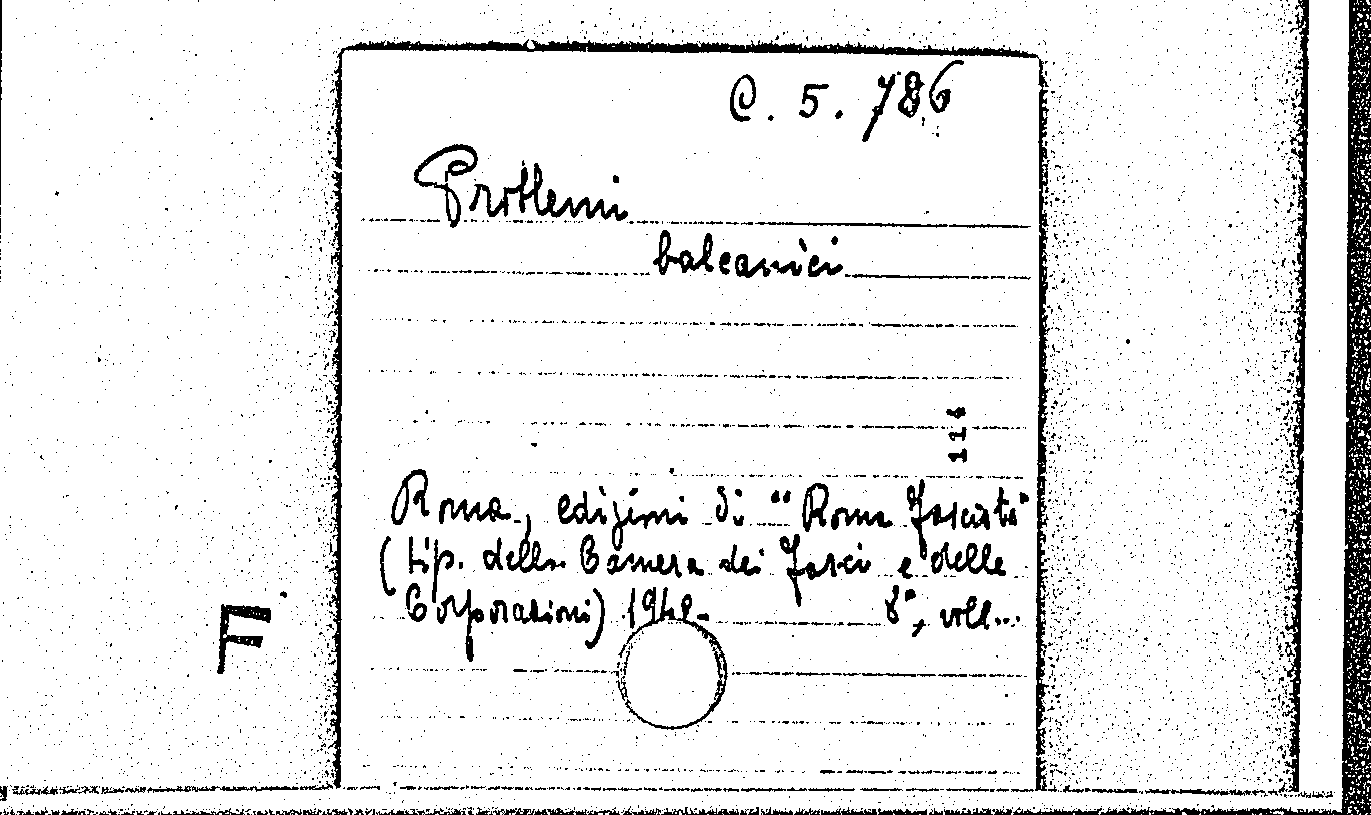 C. 5. 786
Problemi
balcanici
114
Roma, edizioni di "Roma Fascista"
(tip. della Camera dei Fasci e delle
Corporazioni) 1942- 8°, voll...
F